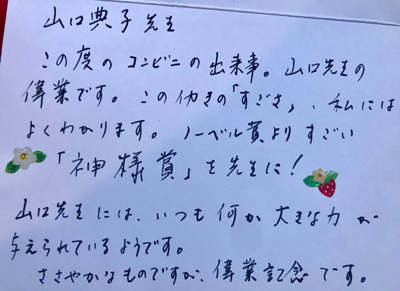 山口典子先生
この度のコンビニの出来事。山口先生の
偉業です。この働きの「すごさ」、私には
よくわかります。ノーベル賞よりすごい
「神様賞」を先生に!
山口先生には、いつも何か大きな力が
与えられているようです。
ささやかなものですが、偉業記念です。